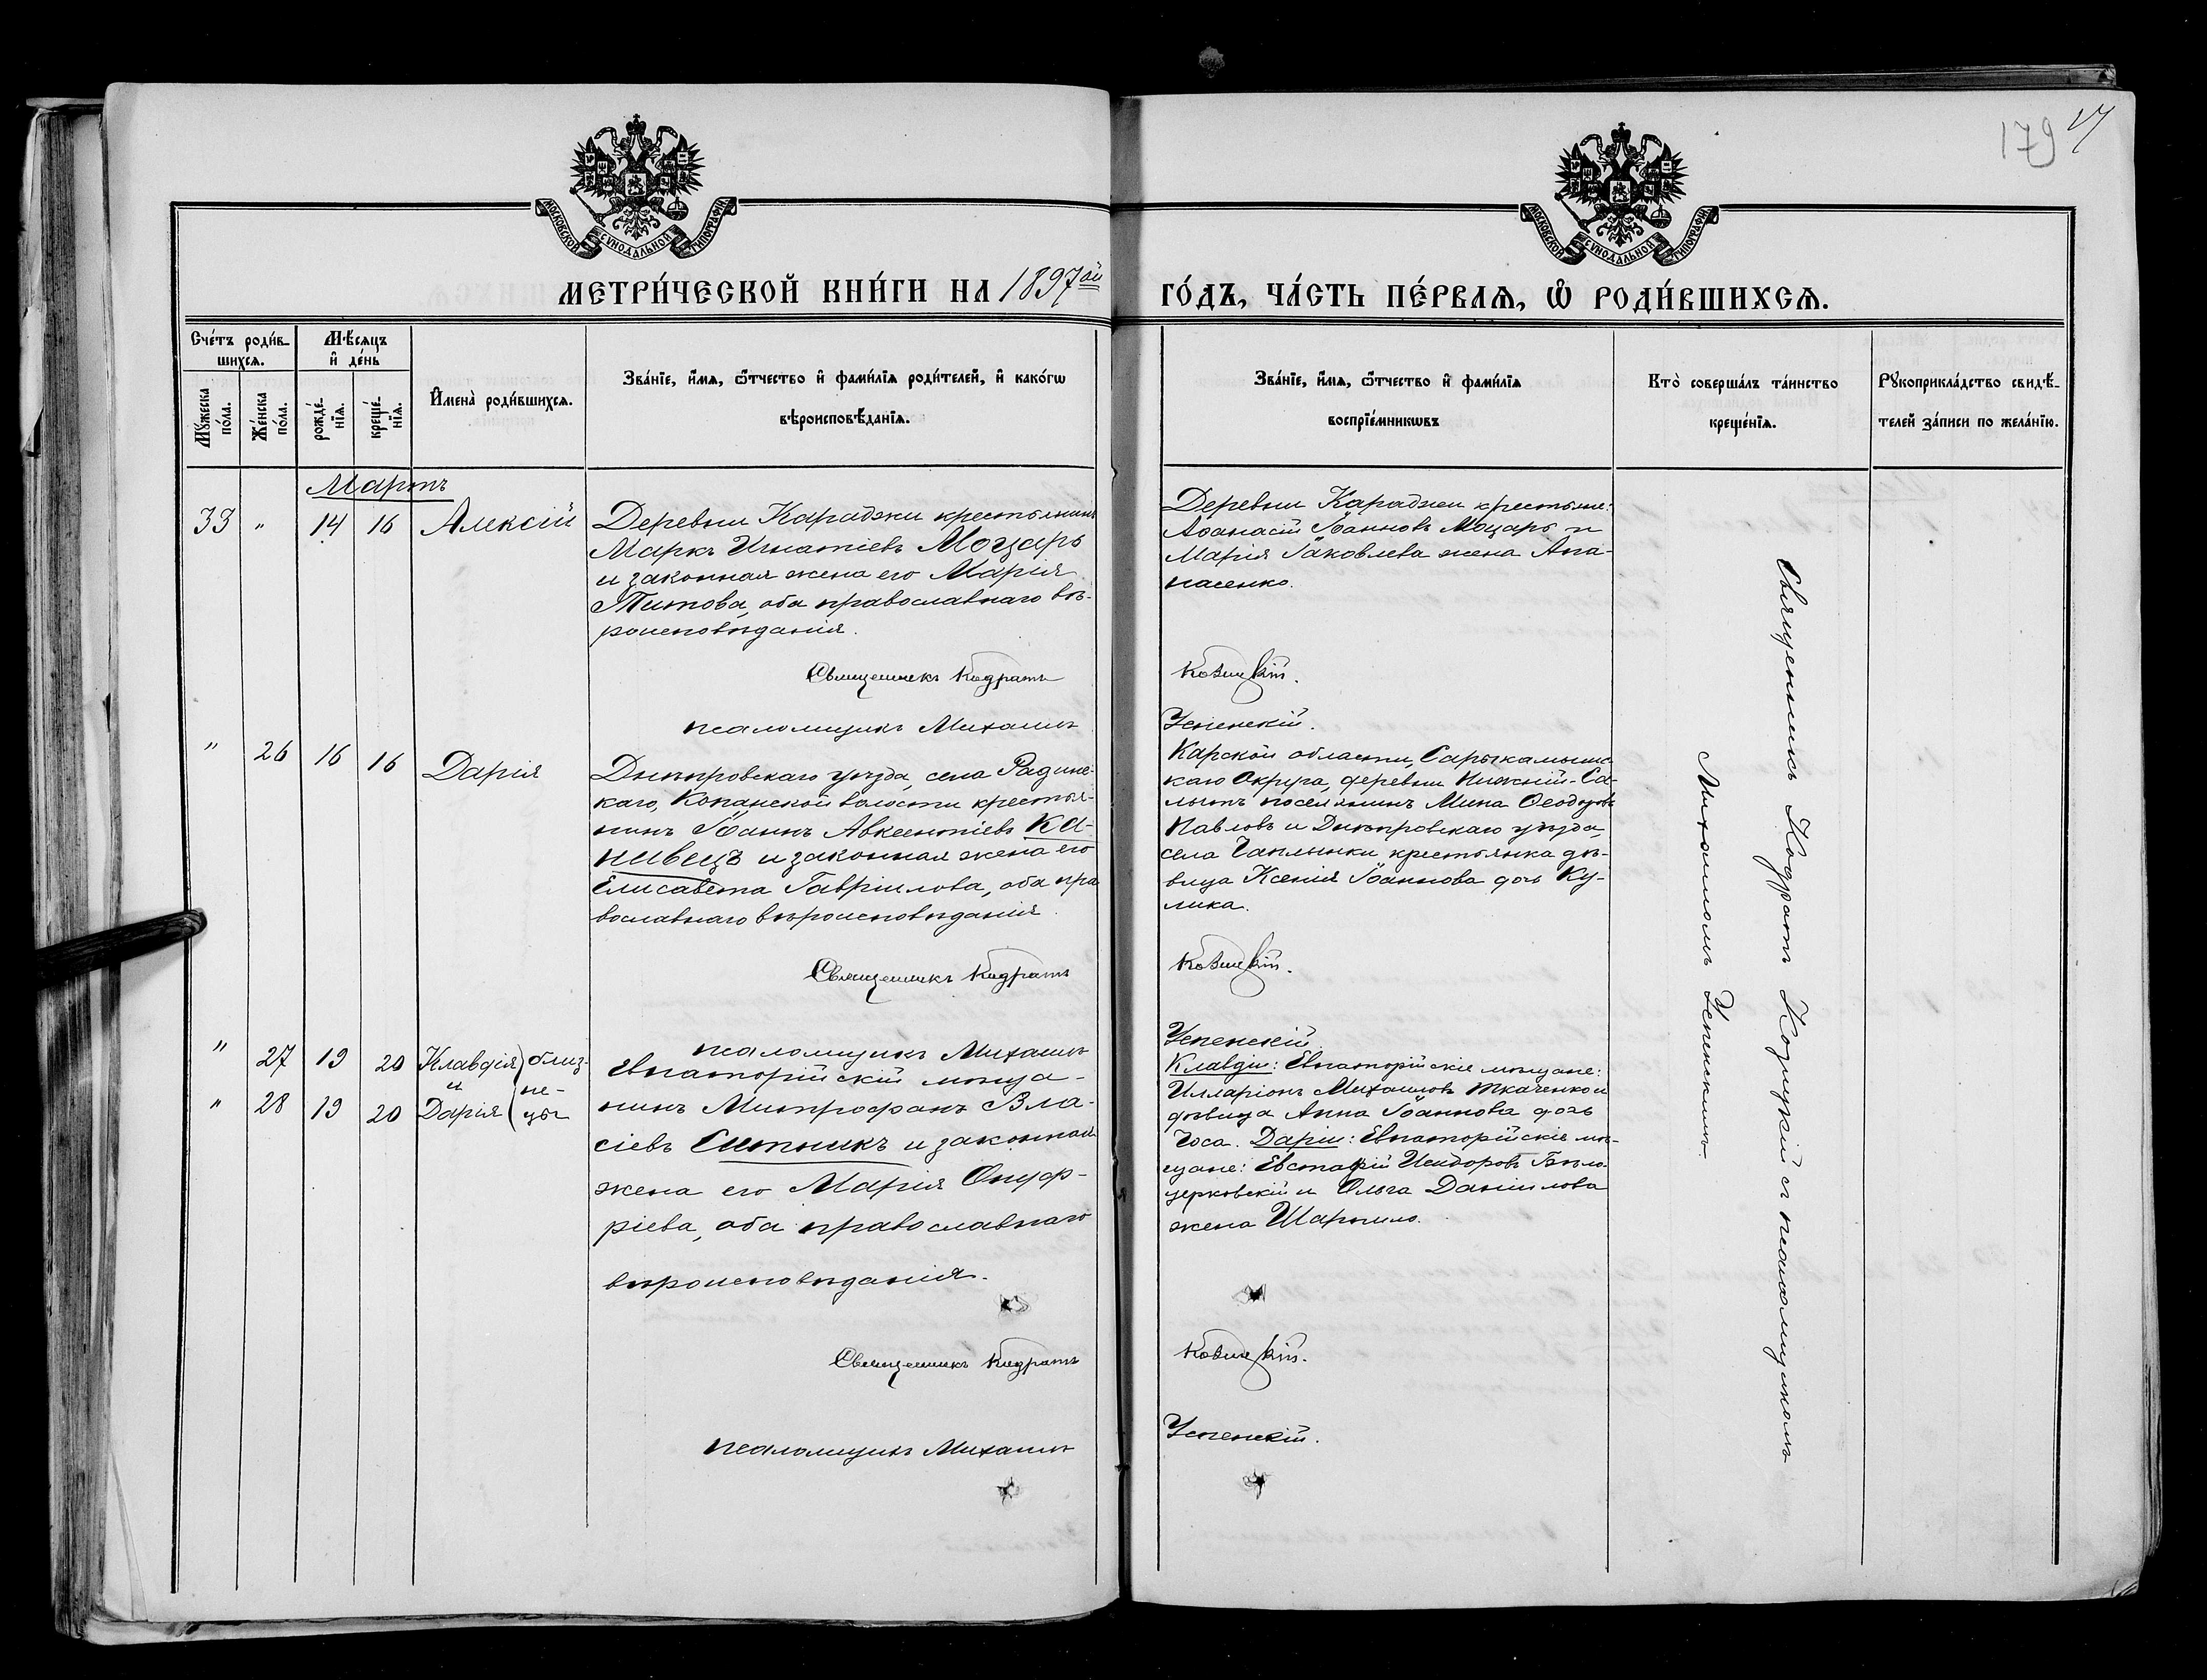 179 17
МОСКОВСКОЙ СѴНОДАЛЬНОЙ ТИПОГРАФІИ
МОСКОВСКОЙ СѴНОДАЛЬНОЙ ТИПОГРАФІИ
МЕТРИ́ЧЕСКОЙ КНИ́ГИ НА 1897ой ГО́ДЪ, ЧА́СТЬ ПЕ́РВАѦ, Ѡ҆ РОДИ́ВШИХСѦ.
Сче́тъ роди́в-
шихсѧ.
Мꙋ́жеска по́ла.
Же́нска по́ла.
Мѣ́сѧцъ
и҆ де́нь
рожде́-нїѧ.
креще́-нїѧ.
И҆мена̀ роди́вшихсѧ.
Зва́нїе, и҆́мѧ, ѻ҆́тчество и҆ фами́лїѧ роди́телей, и҆ како́гѡ
вѣроисповѣ́данїѧ.
Зва́нїе, и҆́мѧ, ѻ҆́тчество и҆ фами́лїѧ
воспрїе́мникѡвъ
Кто̀ соверша́лъ та́инство
креще́нїѧ.
Рꙋкоприкла́дство свидѣ́-
телей за́писи по жела́нїю.
Мартъ
33 " 14 16 Алексій
Деревни Караджи крестьянинъ
Маркъ Игнатіевъ Моцарь
и законная жена его Марія
Титова, оба православнаго вѣ-
роисповѣданія.
Священникъ Кодратъ
псаломщикъ Михаилъ
Деревни Караджи крестьяне:
Аѳанасій Іоанновъ Моцарь и
Марія Іаковлева жена Апа-
насенко.
Козицкій.
Успенскій.
" 26 16 16 Дарія
Днѣпровскаго уѣзда, села Радинс-
каго, Копанской волости крестья-
нинъ Іоаннъ Авксентіевъ Ка-
нивецъ и законная жена его
Елисавета Гавріилова, оба пра
вославнаго вѣроисповѣданія.
Священникъ Кодратъ
псаломщикъ Михаилъ
Карской области, Сарыкамышс-
каго Округа, деревни Нижній-Са-
лытъ поселянинъ Мина Ѳеодоровъ
Павловъ и Днѣпровскаго уѣзда,
села Чаплынки крестьянка дѣ-
вица Ксенія Іоаннова дочь Ку-
лика.
Козицкій.
Успенскій.
" 27 19 20 Клавдія близ-
и не-
" 28 19 20 Дарія цы
Евпаторійскій мѣща-
нинъ Митрофанъ Вла-
сіевъ Ситникъ и законная
жена его Марія Онуф-
ріева, оба православнаго
вѣроисповѣданія.
Священникъ Кодратъ
псаломщикъ Михаилъ
Клавдіи: Евпаторійскіе мѣщане:
Илларіонъ Михаиловъ Ткаченко и
дѣвица Анна Іоаннова дочь
Чоса. Даріи: Евпаторійскіе мѣ-
щане: Евстафій Исидоровъ Бѣло-
церковскій и Ольга Даніилова
жена Шарпило.
Козицкій.
Успенскій.
Священникъ Кодратъ Козицкій съ псаломщикомъ
Михаиломъ Успенскимъ